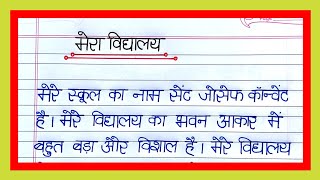 मेरा विद्यालय
मेरे स्कूल का नाम सेंट जोसेफ कॉन्वेंट
है। मेरे विद्यालय का भवन आकार में
बहुत बड़ा और विशाल है। मेरे विद्यालय